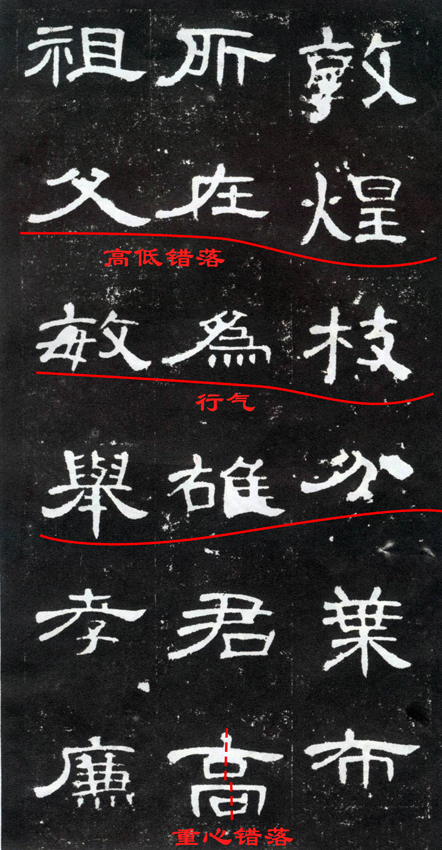 敦煌枝分葉布
所在為雄君高
祖父敏舉孝廉
高低错落
行气
童心错落